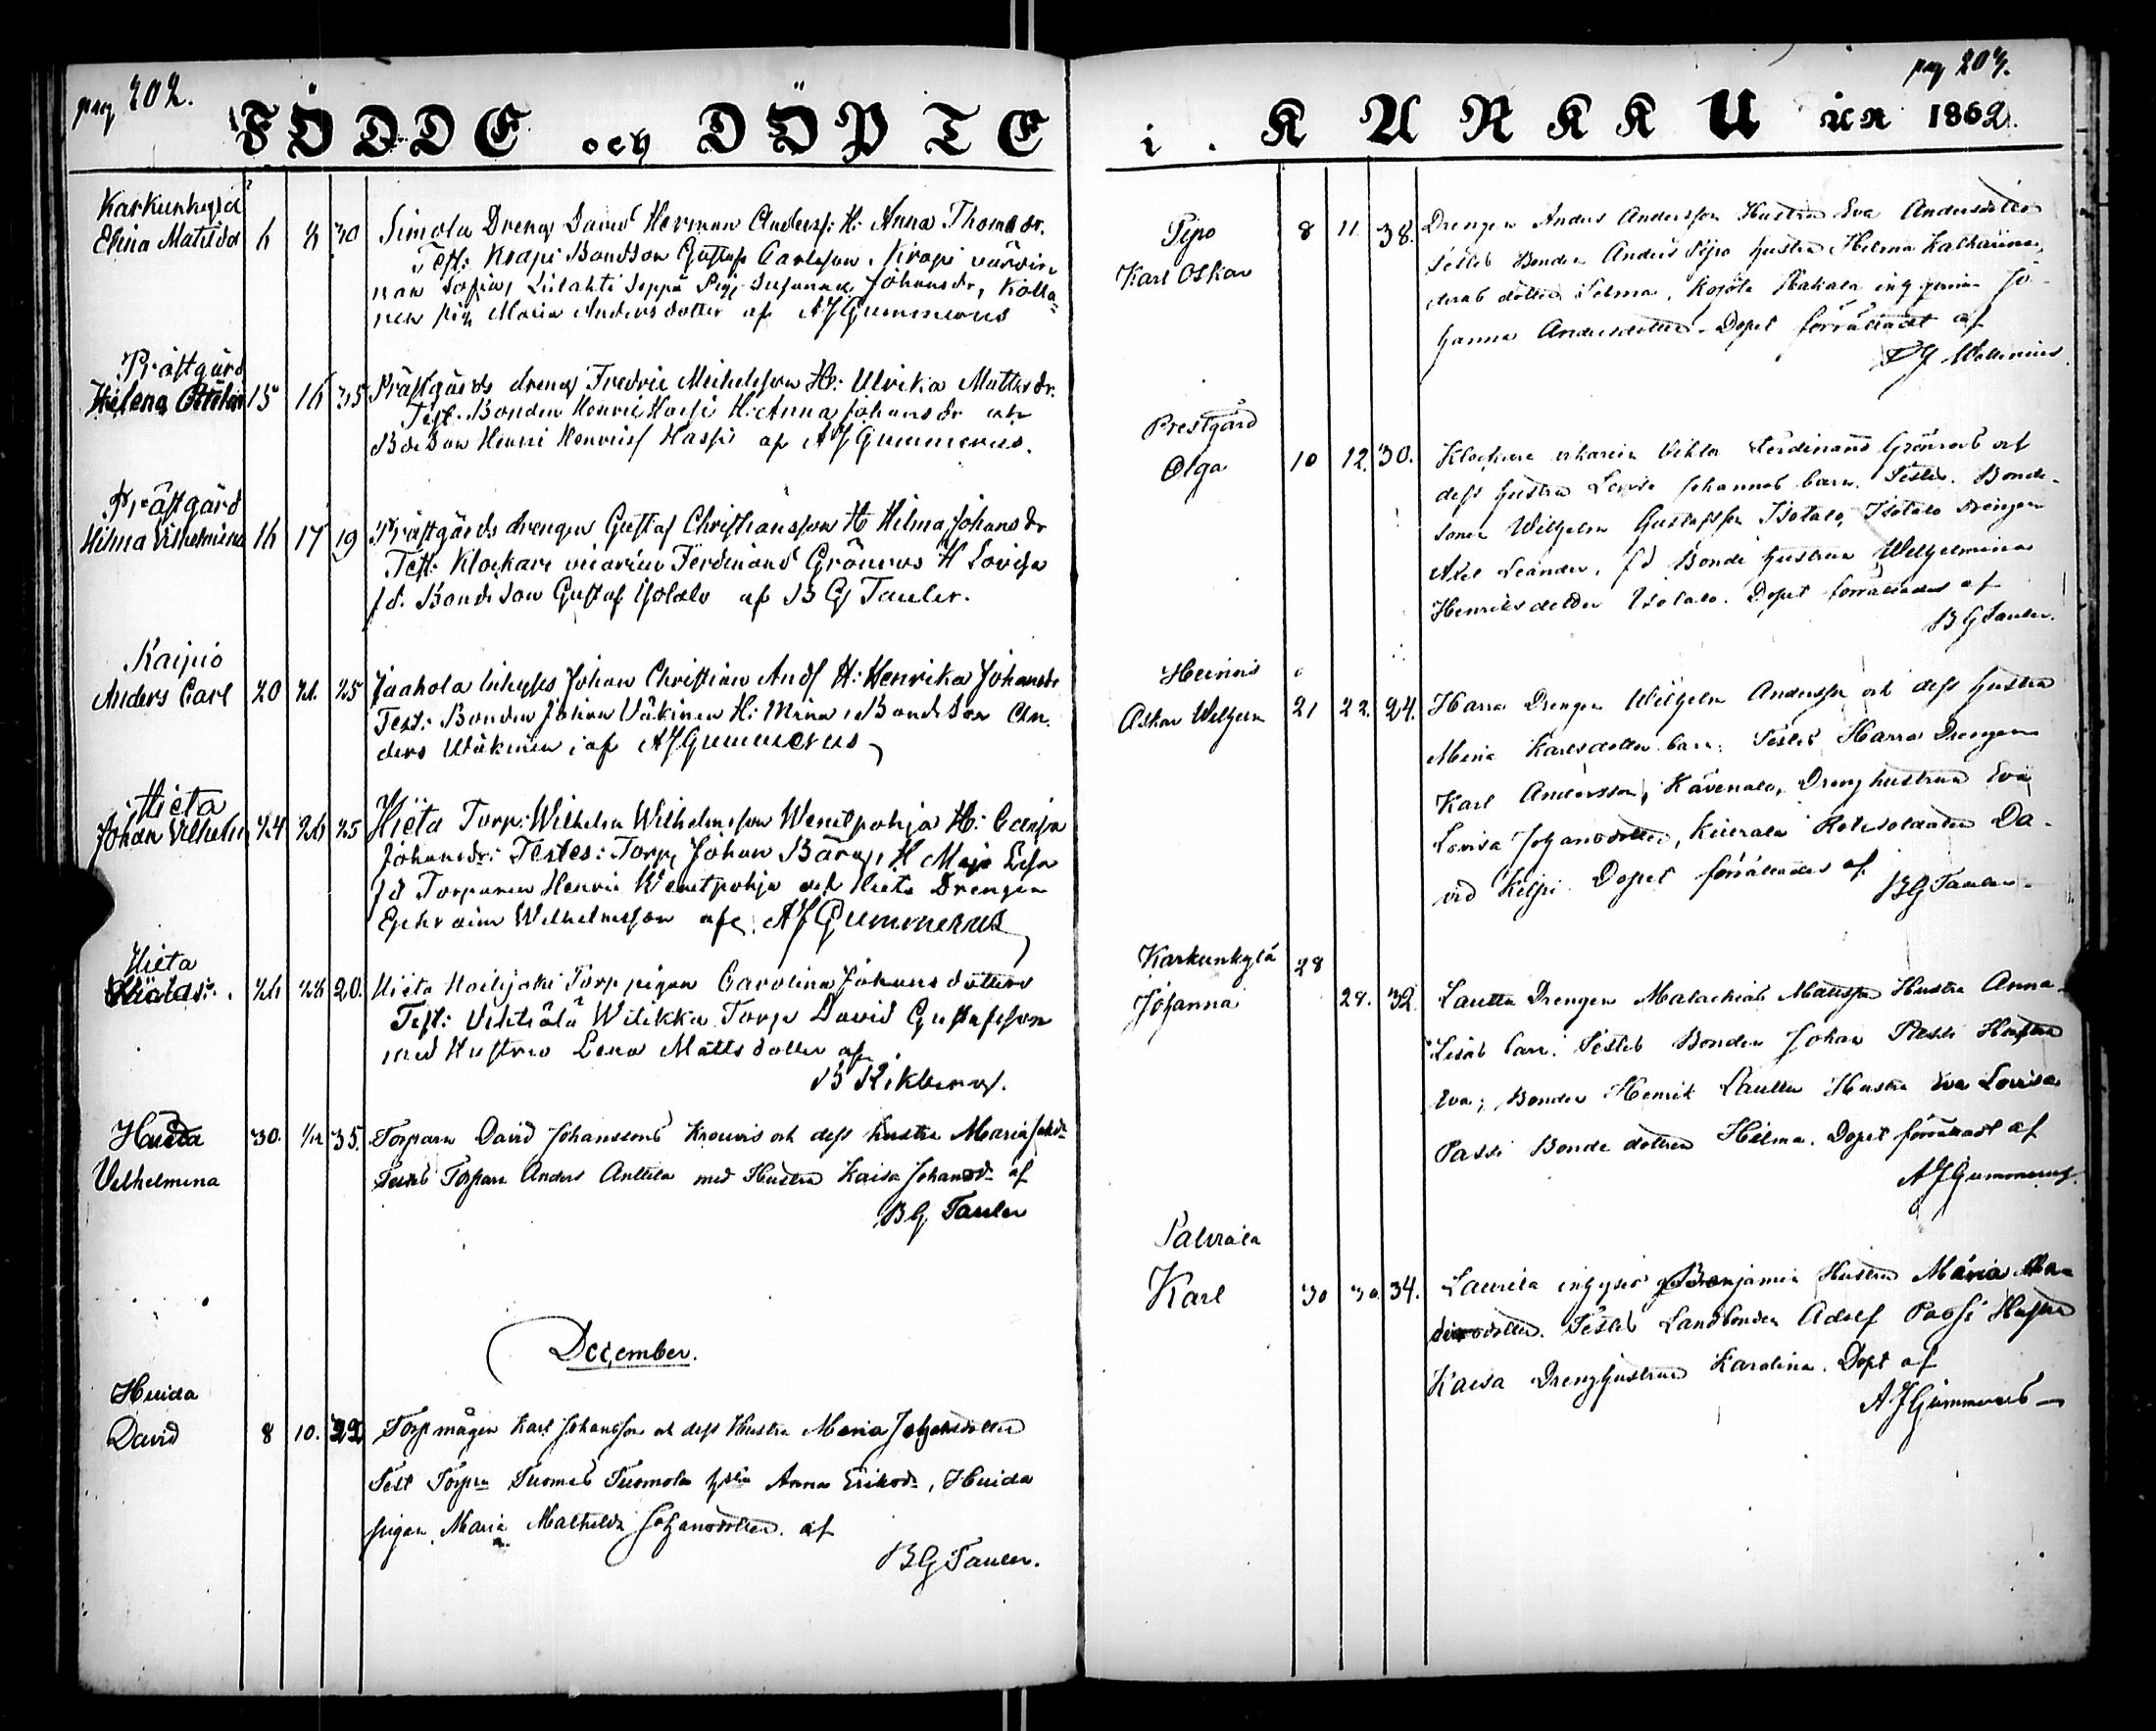 pag 202.
FÖDDE och DÖPTE
Karkunkylä
Elina Matilda 6 8 30 Simola Dreng David Herman Anderss: H: Anna Thomasdr.
Test: Krapi Bondson Gustaf Carlsson, Krapi värdin
nan Sofia, Liilahti Seppä Pig. Susanna Johansdr, Kolla-
nen pig Maria Andersdotter af A J Gummerus
Prästgård
Helena 15 16 35 Prästgårds dreng Fredric Michelsson H: Ulrika Mattsdr.
Test. Bonden Henric Hassi H: Anna Johansdr och
Bdeson Henric Henricss Hassi af A J Gummerus.
Prästgård
Hilma Vilhelmina 16 17 19 Prästgårds drengen Gustaf Christiansson H Hilma Johansdr
Test: Klockare vicarien Ferdinand Grönroos H Lovisa
fd. Bondeson Gustaf Isotalo af B G Tauler.
Kaipio
Anders Carl 20 21. 25 Jaakola inhyses Johan Christian Ands H: Henrika Johansdr
Test: Bonden Johan Väkinen H: Mina, Bondeson An-
ders Wäkinen, af A J Gummerus
Hieta
Johan Vilhelm 24 26 25 Hieta Torp: Wilhelm Wilhelmsson Wenetpohja H: Caisa
Johansdr: Testes: Torp, Johan Bärg, H Maja Lisa
fd Torparen Henric Wenetpohja och Hieta Drengen
Ephraim Wilhelmsson af A J Gummerus
Hieta
26 28 20. Hieta Torp pigan Carolina Johans dotters
Test: Witikka Torp David Gustafsson
med Hustru Lena Mattsdotter af
B Rikberg.
Huida
Vilhelmina 30. 1/12 35. Torparn David Johanssons Krouvis och dess hustru Maria Johdr
Torparn Anders Anttila med Hustru Kaisa Johansdr af
BG Tauler
December.
Huida
David 8 10. 22 Torpmågen Karl Johansson och dess Hustru Maria Johansdotter
Test Torpn Tuomas Tuomola hstu Anna Eriksdr, Huida
pigan Maria Mathilda Johansdotter af
BG Tauler.
pag 203.
i. KARKKU år 1862.
Pipo
Karl Oskar 8 11. 38. Drengen Anders Andersson Hustru Eva Andersdotter
Testes Bonden Anders Pipo hustru Helena Katharina,
deras dotter Selma, Kojola Hakala ing pigan Jo-
hanna Andersdotter. Dopet förrättadt af
Wallenius
Prestgård
Olga 10 12. 30. Klockare vikarien Viktor Ferdinand Grönroos och
dess hustru Lovisa Johannes barn. Testes. Bonde-
sonen Wilhelm Gustafsson Isotalo, Isotalo drengen
Axel Leander, fd Bonde hustrun Wilhelmina
Henriksdotter Isotalo. Dopet förrättades af
BG Tauler.
Heinis
Oskar Wilhelm 21 22. 24. Harra Drengen Wilhelm Andersson och dess hustru
Mina Karlsdotter barn. Testes Harra Drengen
Karl Andersson, Drenghustrun Eva
Lovisa Johansdotter, Rotesoldaten Da-
vid Kilpi. Dopet förrättades af
BG Tauler
Karkunkylä 28
Johanna 28. 32. Lautta Drengen Malachias Mattsson Hustru Anna
Lisas barn. Testes Bonden Johan Passi Hustru
Eva; Bonden Henrik Lautta Hustru Eva Lovisa
Passi Bonde dotter Hilma. Dopet förrättadt af
A J Gummerus.
Palviala
Karl 30 30. 34. Laurila inhyses Benjamin Hustru Maria
Testes Landbonden Adolf Passi Hustru
Kaisa Drenghustrun Karolina. Dopt af
A J Gummerus